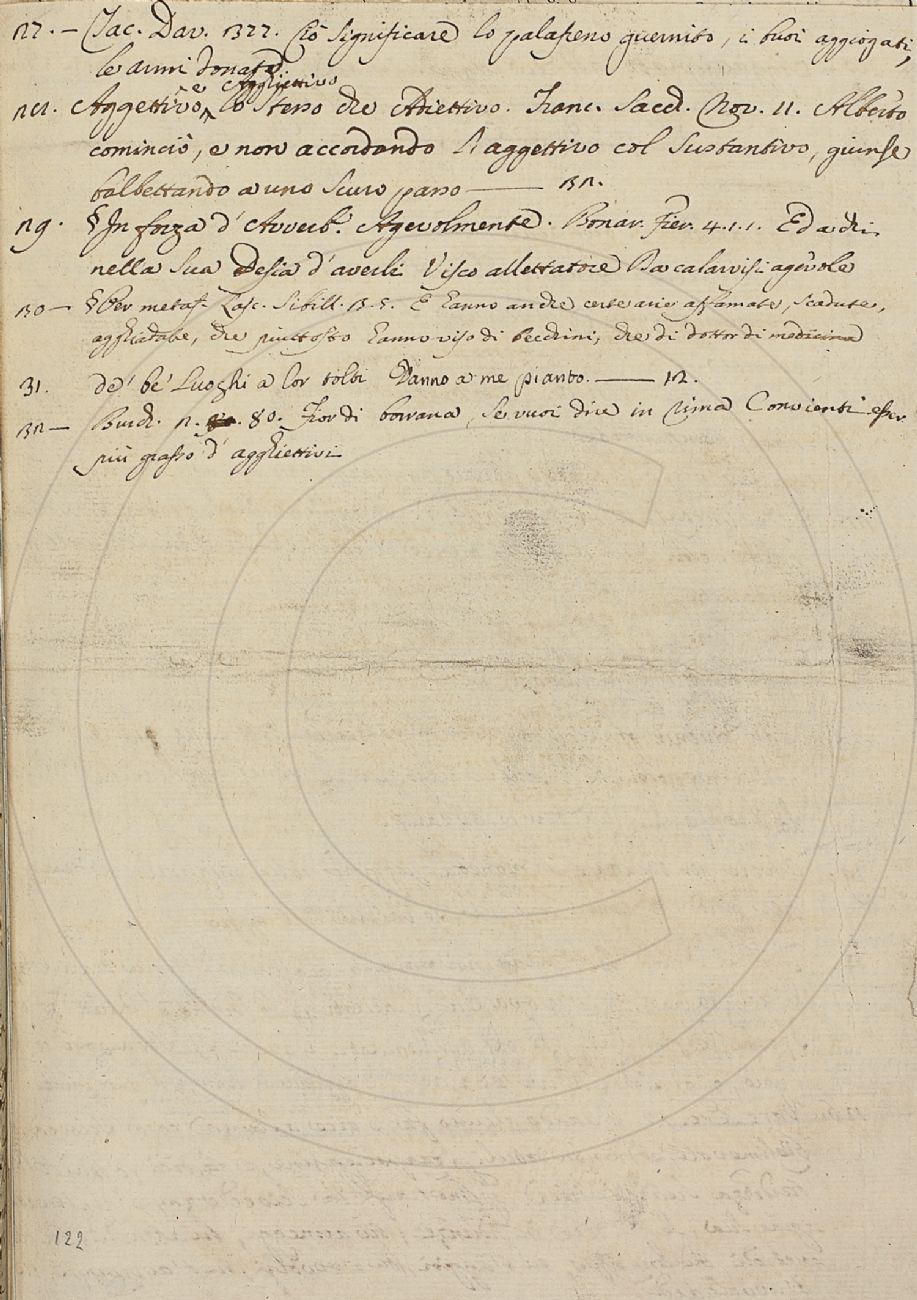 27. — Tac. Dav. 377. Ciò significare lo palafreno guernito, i buoi aggiogati,
le armi donate
28. Aggettivo, e Agghiettivo lo stesso che Adiettivo. Franc. Sacch. Nov. 11. Alberto
cominciò, e non accordando l'aggettivo col sustantivo, giunse
balbettando a uno scuro passo —— 32.
29. § In forza d'Avverb.° Agevolmente. Bonar. Fier. 4.1.1. Ed a chi
nella sua desia d'averli Visco allettatore
30 — § Per metaf. Lasc. Sibill. 3.5. E hanno anche cert'arie affamate, scadute,
agghiadate, che piuttosto hanno viso di becchini, che di dottor di medicina
31. de' be' Luoghi a lor tolti Danno a me pianto. —— 12.
32 — Burch. 2. 80. Fior di borrana, se vuoi dire in rima Convienti esser
più grasso d'agghiettivi
122